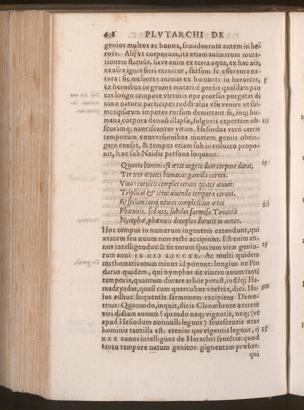 PLVTARCHI DE
genios multos ac bonos, seu deorum autem in he-
roes. Alij vt corporum, ita etiam animarum muta-
tionem statuunt. sicut enim ex terra aqua, ex hac aër,
ex aëre ignis fieri cernitur, sursum se efferente na-
tura: sic meliores animas ex humanis in heroicas, 5
ex heroibus in genios mutari: geniis quasdam pau
cas longo tempore virtutis ope prorsus purgatas di
uinæ naturæ participes
incipientes impotes rursum demittant se,
mana corpora denuo illapsæ, fulgoris expertem ob- 10
scuramq; nanciscantur vitam. Hesiodus verò certis
temporum conuersionibus mortem geniis obtin-
gere censet, & tempus etiam sub inuolucro propo-
nit, hæc sub Naidis persona loquens:
Quantum hominis est ætas vegeto dum corpore durat, 15
Ter tres ætates humanas garrula cornix
Viuax cornicis complet ceruus quater æuum:
Triplicat & cerui viuendo tempora coruus.
At fœlicem corui nouies complectitur æui
Phœnicis. sed nos, soboles formosa Tonantis 20
Nymphæ, phœnicis decuplos duratis in annos.
Hoc tempus in numerum ingentem extendunt, qui
ætatem seu æuum non recte accipiunt. Est enim an-
nus intelligendus: & sit totum spacium vitæ genio- 25
rum anni
mathematicorum minus id ponunt: longius ne Pin
darus quidem, qui nymphas ait viuere æuum tanti
temporis, quantum durare arbor potest, indéq; Ha-
madryadas, quasi cum quercubus viuétes, dici. Hu- 30
ius adhuc loquentis sermonem excipiens Deme-
trius: Quomodo, inquit, dicis Cleombrote ætatem
viri dictam annum? quando neq; vigentis, neq; (vt
apud Hesiodum nonnulli legunt) senescentis ætas
hominis tantilla est. etenim qui vigentis legunt, ij 35
xxx annos intelligunt de Heracliti sententia: quod
tanto tempore natum genitor gignentem præbet.
qui